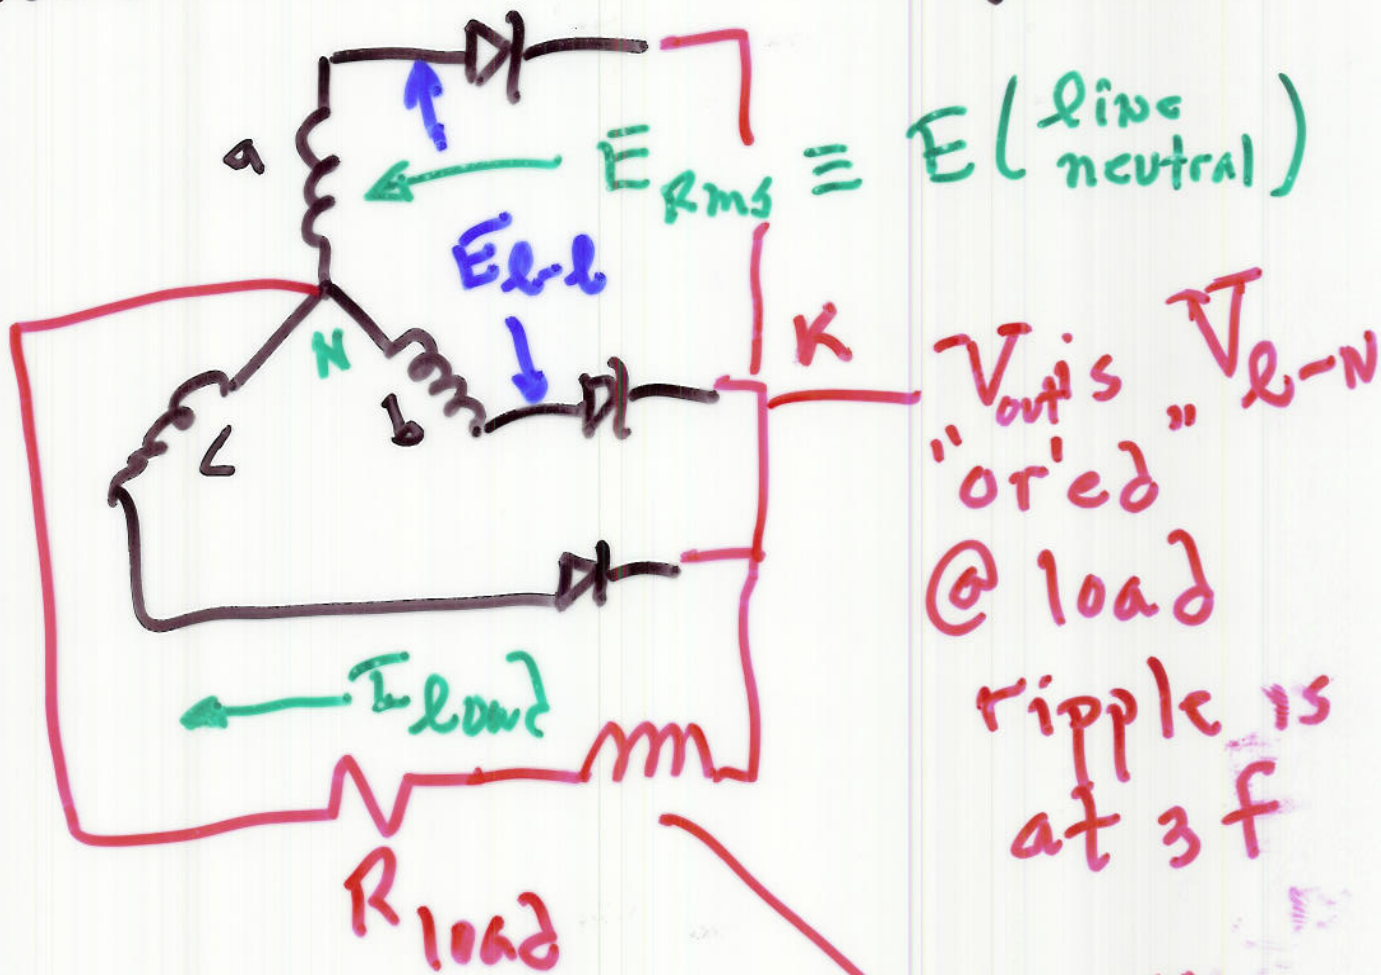 a
E Rms ≡ E ( line neutral )
E l-l
N
b
c
K
Vout is V l-N
"or'ed"
@ load
ripple is
at 3 f
I load
R load